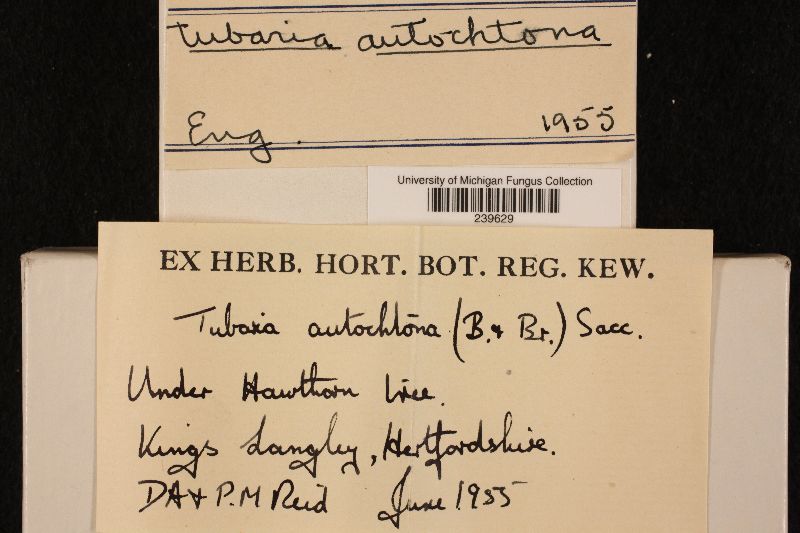 Tubaria autochtona
Eng. 1955
University of Michigan Fungus Collection
239629
EX HERB. HORT. BOT. REG. KEW.
Tubaria autochtona (B. & Br.) Sacc.
Under Hawthorn tree.
Kings Langley, Hertfordshire.
DA & P.M Reid June 1955